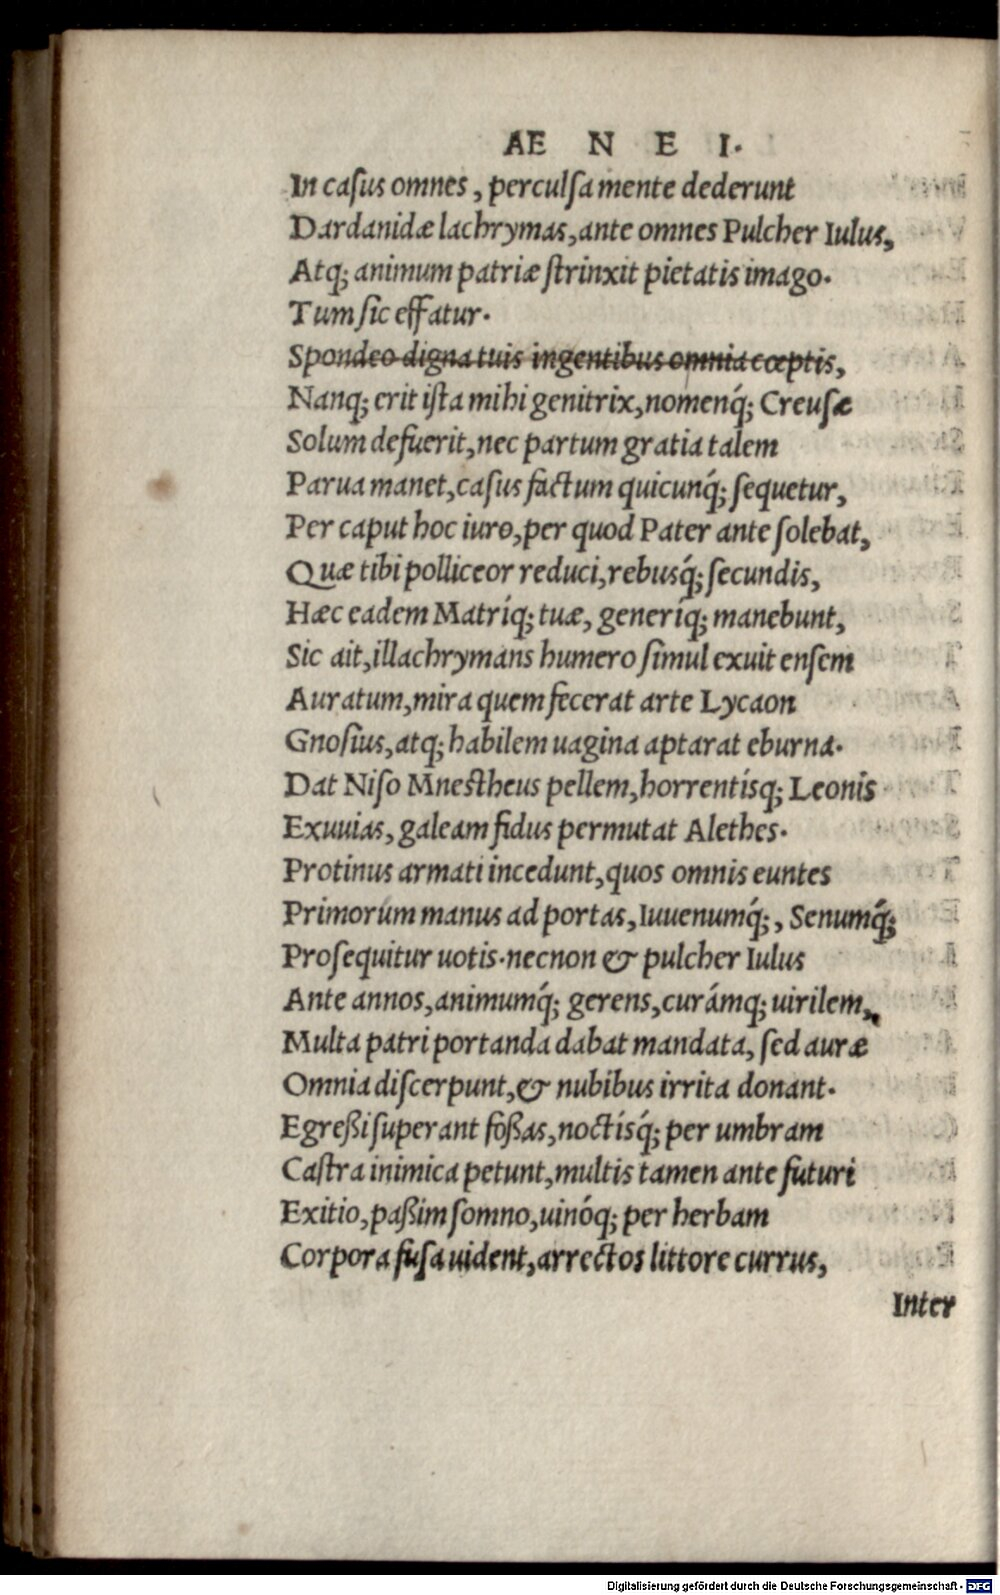 AE N E I.
In caſus omnes, perculſa mente dederunt
Dardanidæ lachrymas, ante omnes Pulcher Iulus,
Atq; animum patriæ ſtrinxit pietatis imago.
Tum ſic effatur.
Spondeo digna tuis ingentibus omnia cœptis,
Nanq; erit iſta mihi genitrix, nomenq́; Creuſæ
Solum defuerit, nec partum gratia talem
Parua manet, caſus factum quicunq́; ſequetur,
Per caput hoc iuro, per quod Pater ante ſolebat,
Quæ tibi polliceor reduci, rebusq́; ſecundis,
Hæc eadem Matríq; tuæ, generíq; manebunt,
Sic ait, illachrymans humero ſimul exuit enſem
Auratum, mira quem fecerat arte Lycaon
Gnoſius, atq; habilem uagina aptarat eburna.
Dat Niſo Mneſtheus pellem, horrentísq; Leonis
Exuuias, galeam fidus permutat Alethes.
Protinus armati incedunt, quos omnis euntes
Primorum manus ad portas, Iuuenumq́;, Senumq́;
Proſequitur uotis. necnon & pulcher Iulus
Ante annos, animumq́; gerens, curámq; uirilem,
Multa patri portanda dabat mandata, ſed auræ
Omnia diſcerpunt, & nubibus irrita donant.
Egreßi ſuperant foßas, noctísq́; per umbram
Caſtra inimica petunt, multis tamen ante futuri
Exitio, paßim ſomno, uinóq; per herbam
Corpora fuſa uident, arrectos littore currus,
Inter
Digitalisierung gefördert durch die Deutsche Forschungsgemeinschaft - DFG